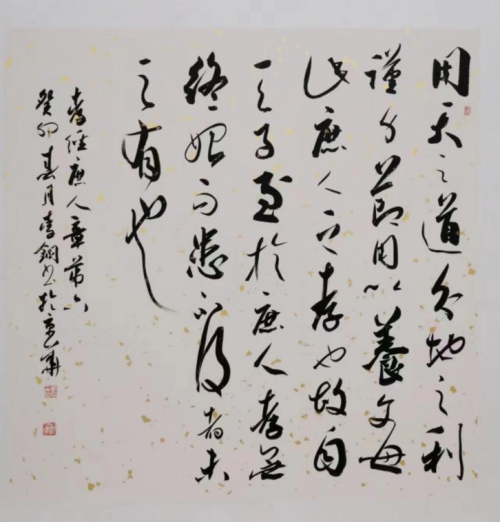 用天之道分地之利
謹身節用以養父母
此庶人之孝也故自
天子至於庶人孝無
終始而患不及者未
之有也
孝經庶人章第六
癸卯春月李鋼書於京華